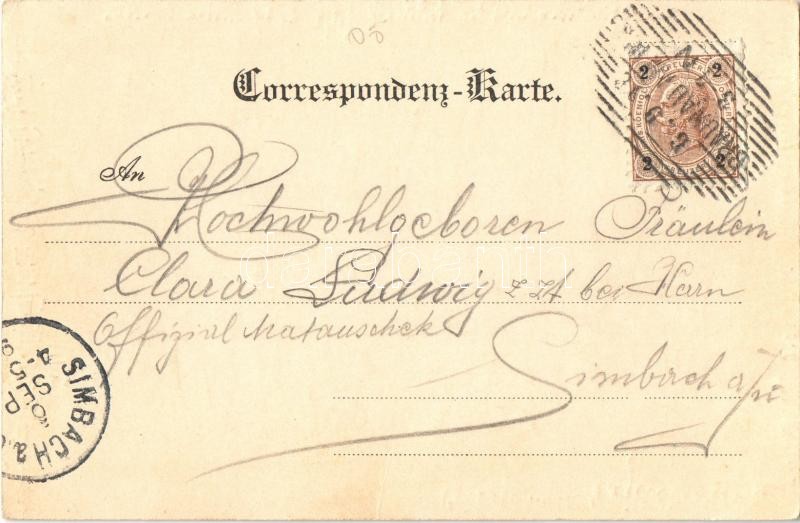 05
Correspondenz-Karte.
An
Hochwohlgeboren Fräulein
Clara Ludwig z Zt bei Herrn
Offizial Matauschek
Simbach a/I
SIMBACH a.
SEP
2 2
2 2